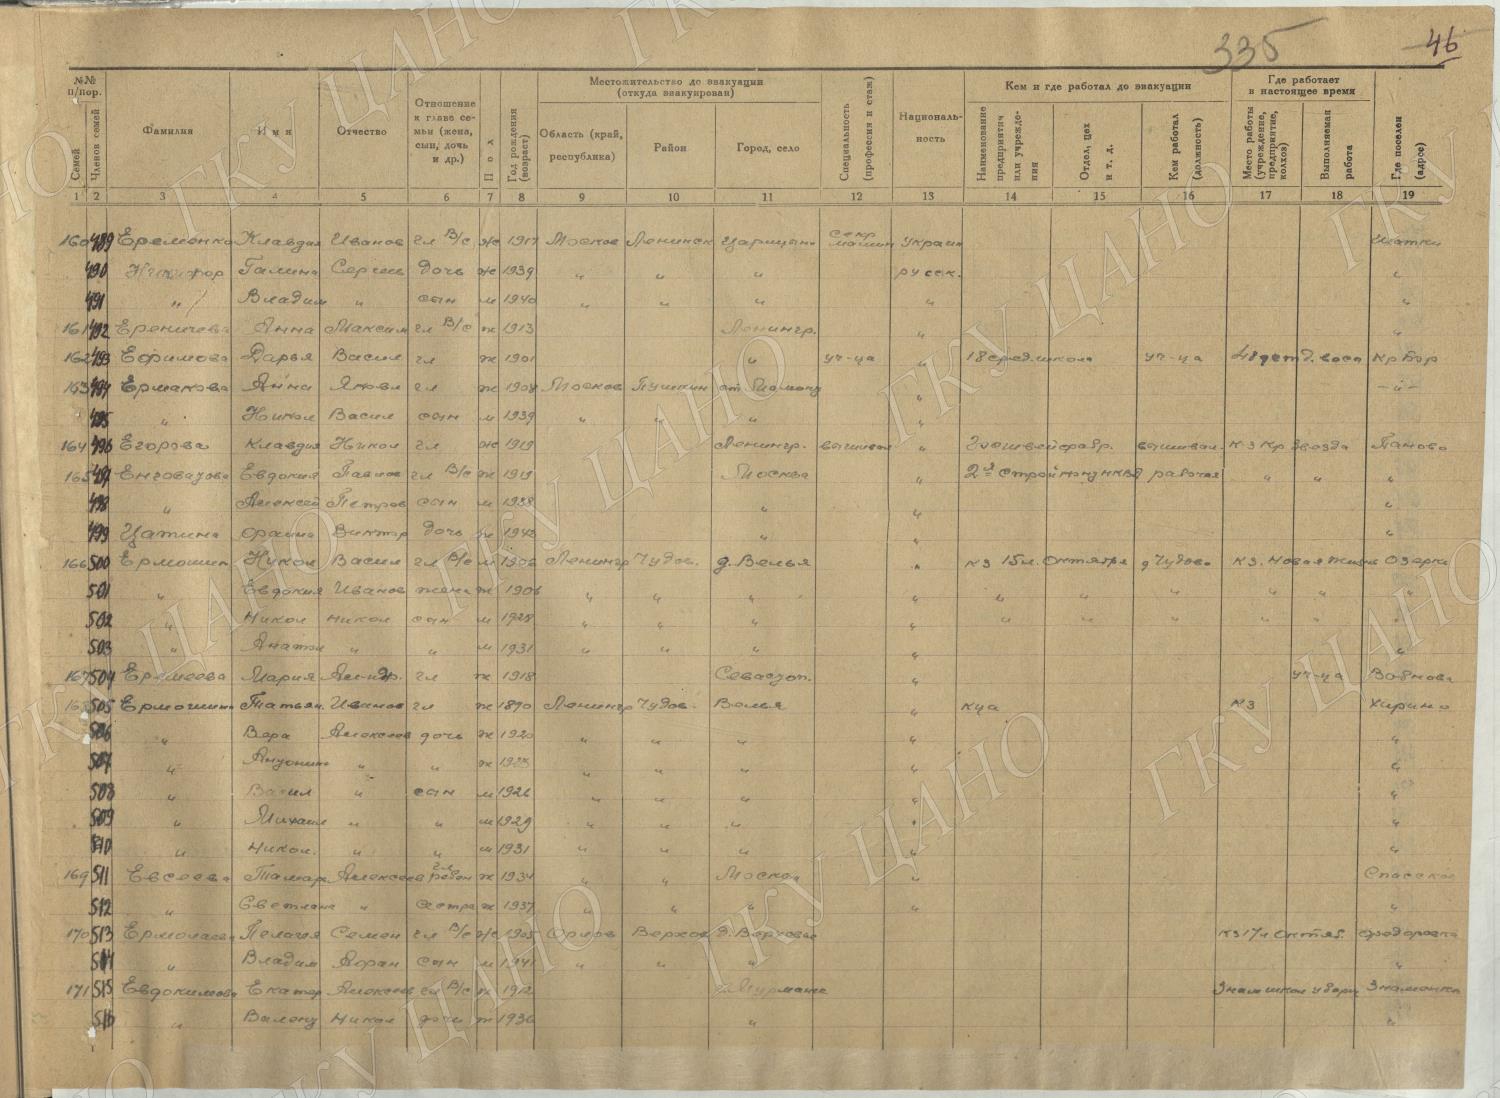 335
46
№№ п/пор.
Семей
Членов семей
Фамилия
Имя
Отчество
Отношение к главе семьи (жена, сын, дочь и др.)
Пол
Год рождения (возраст)
Местожительство до эвакуации (откуда эвакуирован)
Область (край, республика)
Район
Город, село
Специальность (профессия и стаж)
Националь-ность
Кем и где работал до эвакуации
Наименование предприятия или учреждения
Отдел, цех и т. д.
Кем работал (должность)
Где работает в настоящее время
Место работы (учреждение, предприятие, колхоз)
Выполняемая работа
Где поселен (адрес)
1 2 3 4 5 6 7 8 9 10 11 12 13 14 15 16 17 18 19
160 489 Еременко Клавдия Иванов гл В/с ж 1917 Москов Ленинск Царицыно секр машин украин Шатки
490 Галина Сергеев дочь ж 1939 " " " русск. "
491 " Владим " сын м 1940 " " " " "
161 492 Еремичева Анна Максим гл В/с ж 1913 Ленингр. " "
162 493 Ефимова Дарья Васил гл ж 1901 " уч-ца " 18 сред.школа уч-ца Кр Бор
163 494 Ермакова Анна Яковл гл ж 1908 Москов Пушкин " -"-
495 " Никол Васил сын м 1939 " " " "
164 496 Егорова Клавдия Никол гл ж 1919 Ленингр. вышивал " вышивал. к-з Кр Звезда Паново
165 497 Евдокия Павлов гл В/с ж 1919 Москва " рабочая " " "
498 " Алексей Петров сын м 1938 " " "
499 Виктор дочь ж " " "
166 500 Ермошин Никол Васил гл В/с м 1906 Ленингр Чудов. д. Велья " кз 15 л. Октября д Чудово кз. Новая жизнь Озерки
501 " Евдокия Иванов жена ж 1906 " " " " " " " " " "
502 " Никол Никол сын м 1928 " " " " " " " " " "
503 " Анатол " " м 1931 " " " " "
167 504 Еремеева Мария Алендр. гл ж 1918 Севастоп. " уч-ца
505 Ермошина Татьян. Иванов гл ж 1890 Ленингр Чудов. Велья " кз Хирино
506 " Вера Алексеев дочь ж 1920 " " " " "
507 " Антонин " " ж 1923 " " " " "
508 " Васил " сын м 1926 " " " " "
509 " Михаил " " м 1929 " " " " "
510 " Никол. " " м 1931 " " " " "
169 511 Евсеева Тамар Алексеев ж 1934 " " Москва " Спасское
512 " Светлана " сестра ж 1937 " " " " "
170 513 Ермолаева Пелагея Семен гл В/с ж 1905 Орлов Верхов д. Верховье кз 17 л Октяб. Федоровка
514 " Владим сын м 1941 " " " "
171 515 Евдокимова Екатер Алексеев гл В/с ж 1912 Мурманск Знам школ уборщ Знаменка
516 " Никол дочь ж 1936 " "
ГКУ ЦАНО